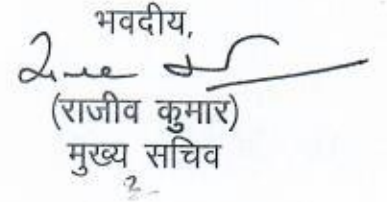 भवदीय,
(राजीव कुमार)
मुख्य सचिव